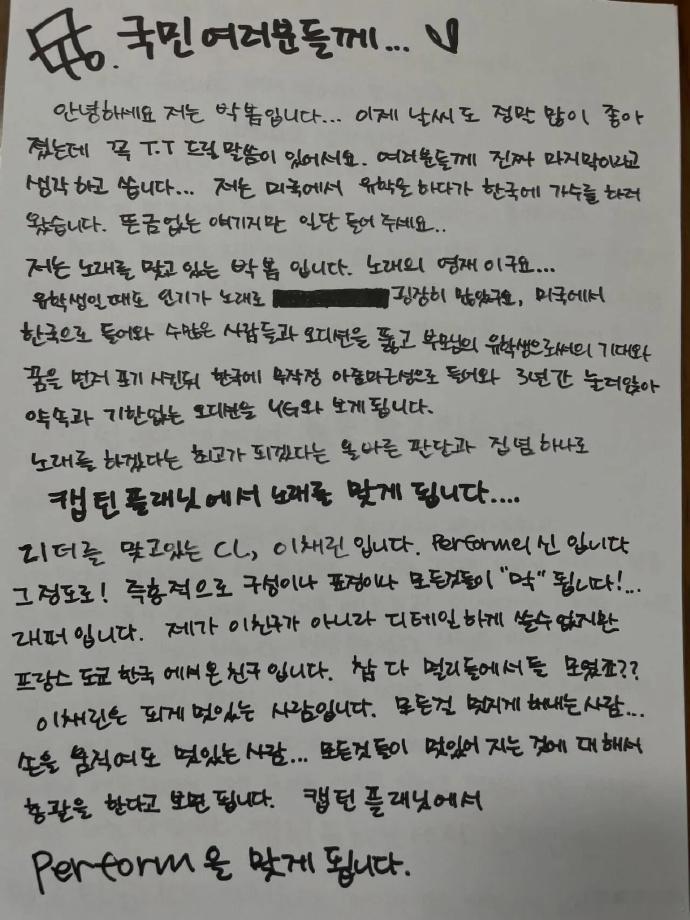 국민여러분들께...
안녕하세요 저는 박봄입니다... 이제 날씨도 정막 많이 좋아
졌는데 꼭 T.T 드릴 말씀이 있어서요. 여러분들께 진짜 마지막이라고
생각하고 씁니다... 저는 미국에서 유학을 하다가 한국에 가수를 하러
왔습니다. 뜬금없는 얘기지만 일단 들어 주세요..
저는 노래를 맞고 있는 박봄 입니다. 노래의 영재 이구요...
유학생일때도 인기가 노래로 굉장히 많았구요, 미국에서
한국으로 들어와 수많은 사람들과 오디션을 뚫고 부모님의 유학생으로써의 기대와
꿈을 먼저 포기 시킨뒤 한국에 무작정 아줌마근성으로 들어와 3년간 눌러앉아
약속과 기한없는 오디션을 YG와 보게됩니다.
노래를 하겠다는 최고가 되겠다는 올바른 판단과 집념 하나로
캡틴플래닛에서 노래를 맞게 됩니다....
리더를 맞고있는 CL, 이채린입니다. Perform의 신 입니다
그정도로! 즉흥적으로 구성이나 표정이나 모든것들이 "막" 됩니다!...
래퍼입니다. 제가 이친구가 아니라 디테일하게 쓸수없지만
프랑스 도쿄 한국 에서온 친구입니다. 참 다 멀리들에서들 모였죠??
이채린은 되게 멋있는 사람입니다. 모든걸 멋지게 해내는사람...
손을 움직여도 멋있는 사람... 모든것들이 멋있어 지는 것에 대해서
총괄을 한다고 보면 됩니다. 캡틴 플래닛에서
Perform을 맞게 됩니다.